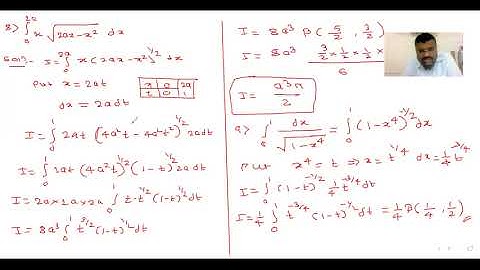 8) ∫₀²ᵃ x √(2ax-x²) dx
Soln:- I = ∫₀²ᵃ x (2ax-x²)^(1/2) dx
Put x = 2at
x | 0 | 2a
t | 0 | 1
dx = 2adt
I = ∫₀¹ 2at (4a²t - 4a²t²)^(1/2) 2adt
I = ∫₀¹ 2at (4a²t)^(1/2) (1-t)^(1/2) 2adt
I = 2a×2a×2a ∫₀¹ t·t^(1/2) (1-t)^(1/2) dt
I = 8a³ ∫₀¹ t^(3/2) (1-t)^(1/2) dt
I = 8a³ β(5/2, 3/2)
I = 8a³ 3/2 × 1/2 × 1/2 ×
6
I = a³π/2
9) ∫₀¹ dx/√(1-x⁴) = ∫₀¹ (1-x⁴)^(-1/2) dx
Put x⁴ = t ⇒ x = t^(1/4) dx = 1/4 t^(-3/4)
I = ∫₀¹ (1-t)^(-1/2) 1/4 t^(-3/4) dt
I = 1/4 ∫₀¹ t^(-3/4) (1-t)^(-1/2) dt = 1/4 β(1/4, 1/2)